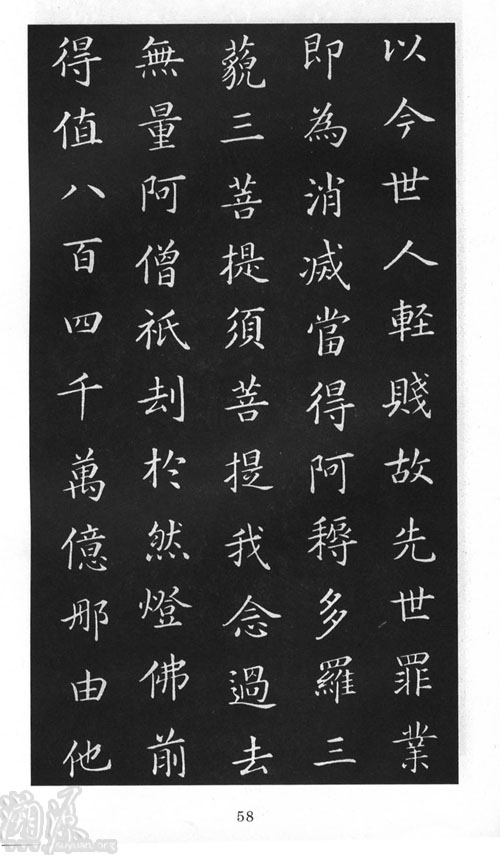 以今世人軽賤故先世罪業
即為消滅當得阿耨多羅三
藐三菩提須菩提我念過去
無量阿僧祇刦於然燈佛前
得值八百四千萬億那由他
58
溯源
www.suyuan.org